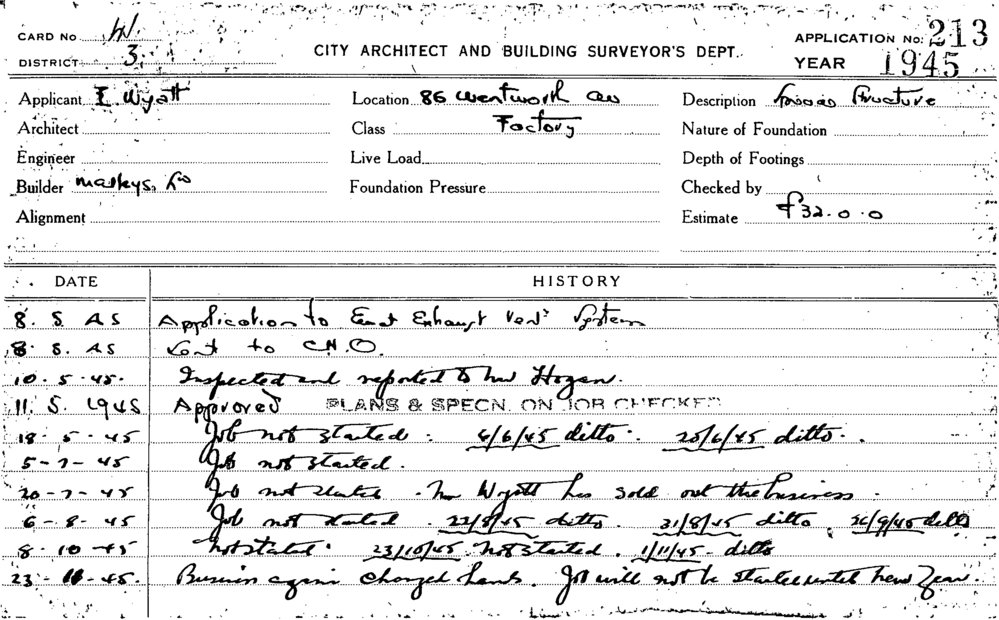 CARD No W.
DISTRICT 3.
CITY ARCHITECT AND BUILDING SURVEYOR'S DEPT.
APPLICATION No: 213
YEAR 1945
Applicant E Wyatt Location 86 Wentworth Av Description Structure
Architect Class Factory Nature of Foundation
Engineer Live Load Depth of Footings
Builder Foundation Pressure Checked by
Alignment Estimate £32.0.0
DATE HISTORY
8. 5. 45 Application to Erect Exhaust Vent. System
8. 5. 45 Sent to C.H.O.
10. 5. 45. Inspected and reported to Mr Hogan.
11. 5. 1945 Approved PLANS & SPECN. ON JOB CHECKED
18. 5. 45 Job not started. 4/6/45 ditto. 20/6/45 ditto.
5-7-45 Job not started.
20-7-45 Job not started. Mr Wyatt has sold out the business.
6-8-45 Job not started. 22/8/45 ditto. 31/8/45 ditto. 26/9/45 ditto
8-10-45 Not started. 23/10/45 Not started. 1/11/45 ditto
23-11-45. Business again changed hands. Job will not be started until New Year.